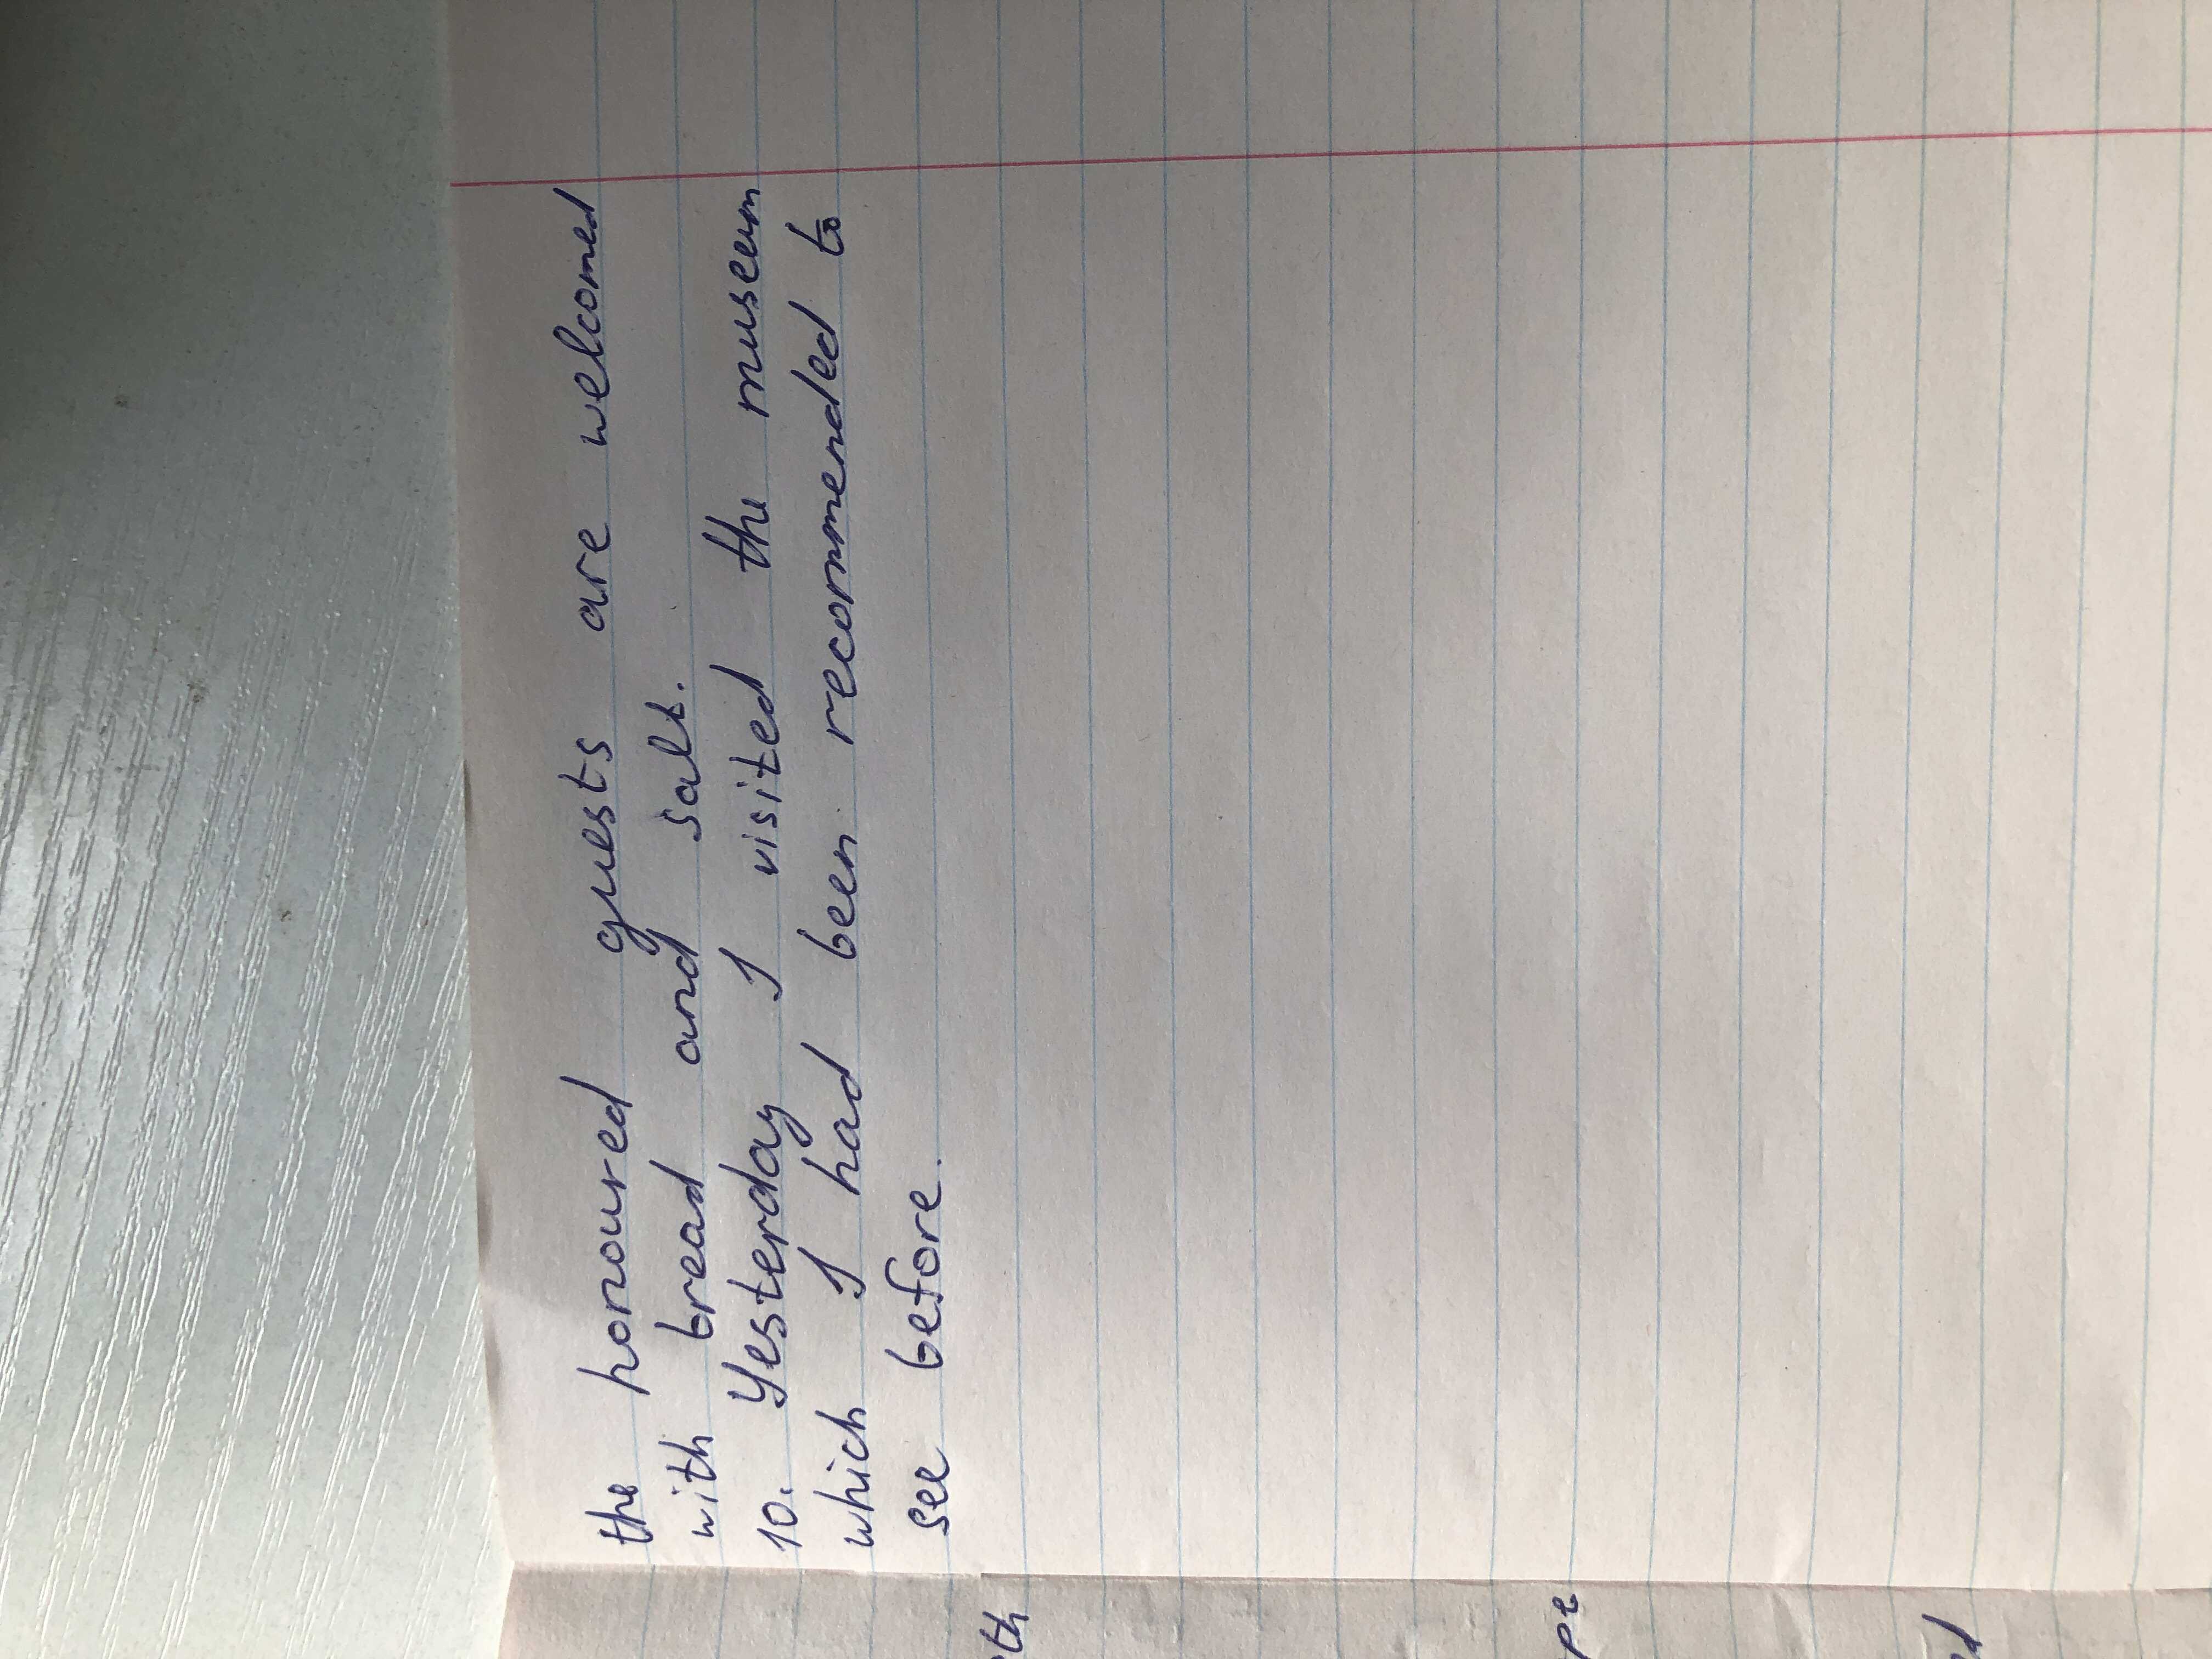 the honoured guests are welcomed
with bread and salt.
10. Yesterday I visited the museum
which I had been recommended to
see before.